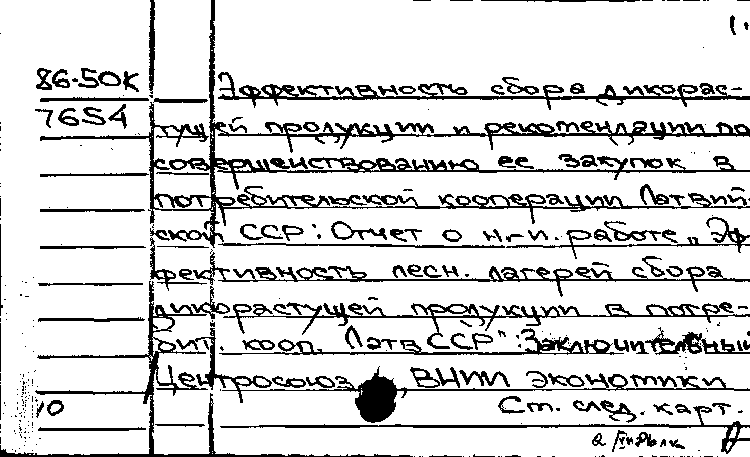 86-50К
Эффективность сбора дикорас-
7654
тущей продукции и рекомендации по
совершенствованию ее закупок в
потребительской кооперации Латвий-
ской ССР: Отчет о н.-и. работе „Эф-
фективность лесн. лагерей сбора
дикорастущей продукции в потре-
бит. кооп. Латв ССР": Заключительный
Центросоюз, ВНИИ экономики
10
Ст. след. карт.